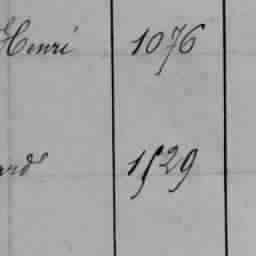 Henri 1076
ard 1529